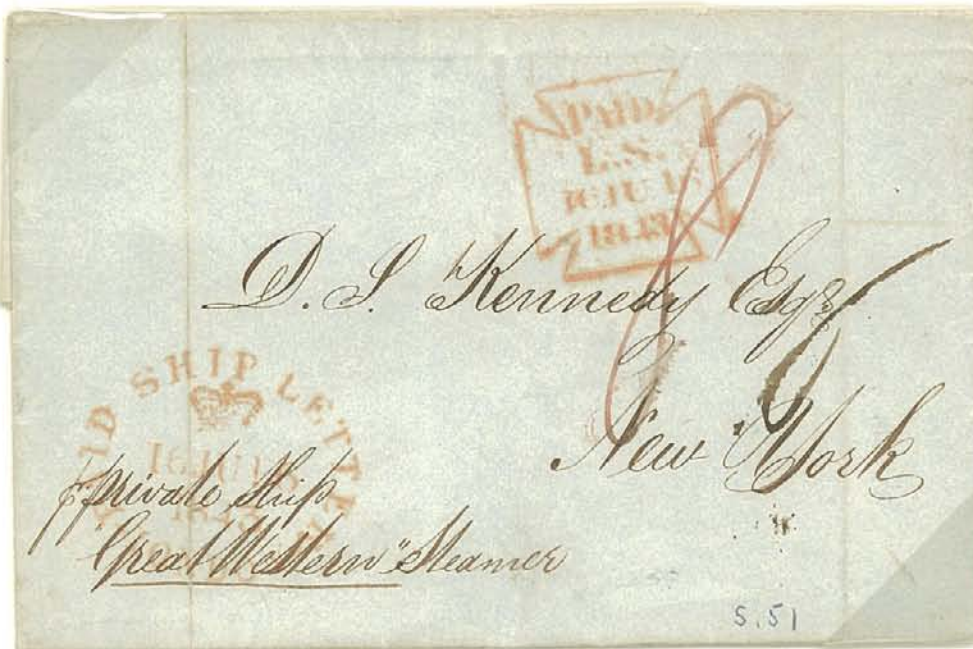 PAID
L.S.
16 JU 16
1843
D. S. Kennedy Esqr
New York
PAID SHIP LETTER
16 JU 16
pr private Ship
"Great Western" Steamer
S.51